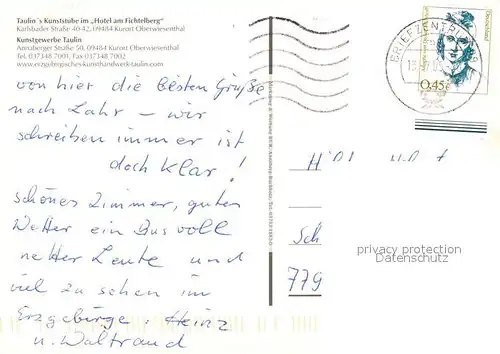 Taulin´s Kunststube im „Hotel am Fichtelberg“
Karlsbader Straße 40-42, 09484 Kurort Oberwiesenthal
Kunstgewerbe Taulin
Annaberger Straße 50, 09484 Kurort Oberwiesenthal
Tel. 037348 7091, Fax 037348 7002
www.erzgebirgisches-kunsthandwerk-taulin.com
von hier die besten Grüße
nach Lahr – wir
schreiben immer ist
doch klar!
schönes Zimmer, gutes
Wetter ein Bus voll
netter Leute und
viel zu sehen im
Erzgebirge. Heinz
u. Waltraud
BRIEFZENTRUM
0,45€
Sch
779
privacy protection
Datenschutz